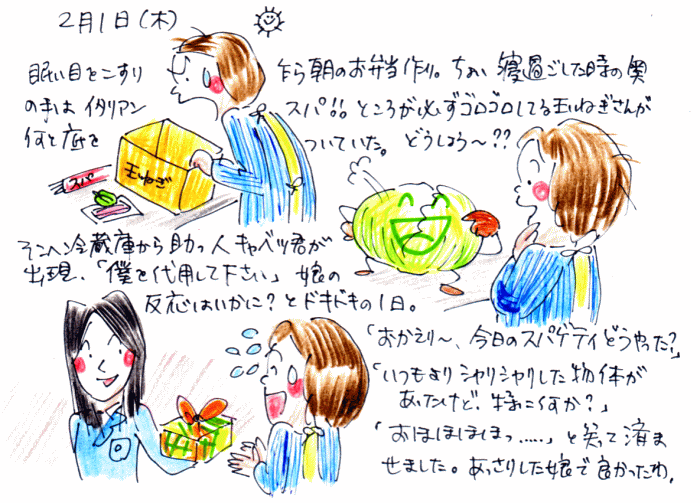 2月1日(木)
眠い目をこすり乍ら朝のお弁当作り。ちょい寝過ごした時の奥
の手は イタリアンスパ。。ところが必ずゴロゴロしてる玉ねぎさんが
何と底をついていた。どうしよう～??
スパ
玉ねぎ
そこへ冷蔵庫から助っ人キャベツ君が
出現、「僕を代用して下さい」娘の
反応はいかに?とドキドキの1日。
「おかえり～、今日のスパゲティどうやった?」
「いつもよりシャリシャリした物体が
あったけど、特に何か?」
「おほほほほっ……」と笑って済ま
せました。あっさりした娘で良かったわ。